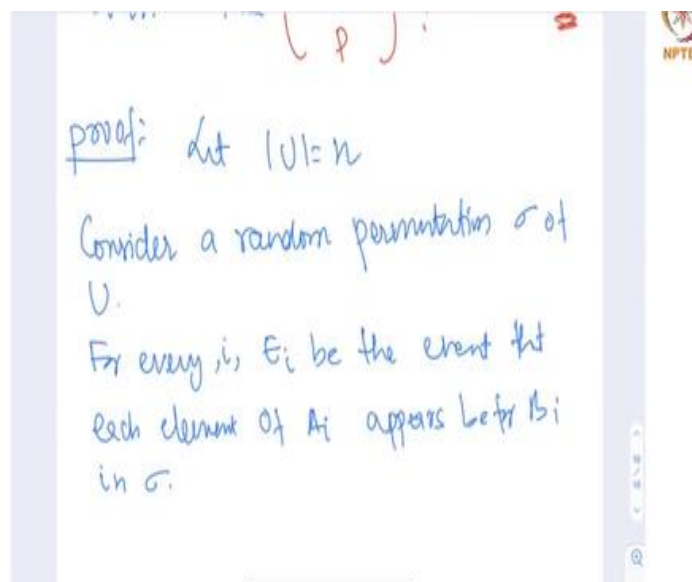 ( p ) .
NPTE
proof: Let |U|= n
Consider a random permutation σ of
U.
For every, i, Ei be the event tht
each element of Ai appers befor Bi
in σ.